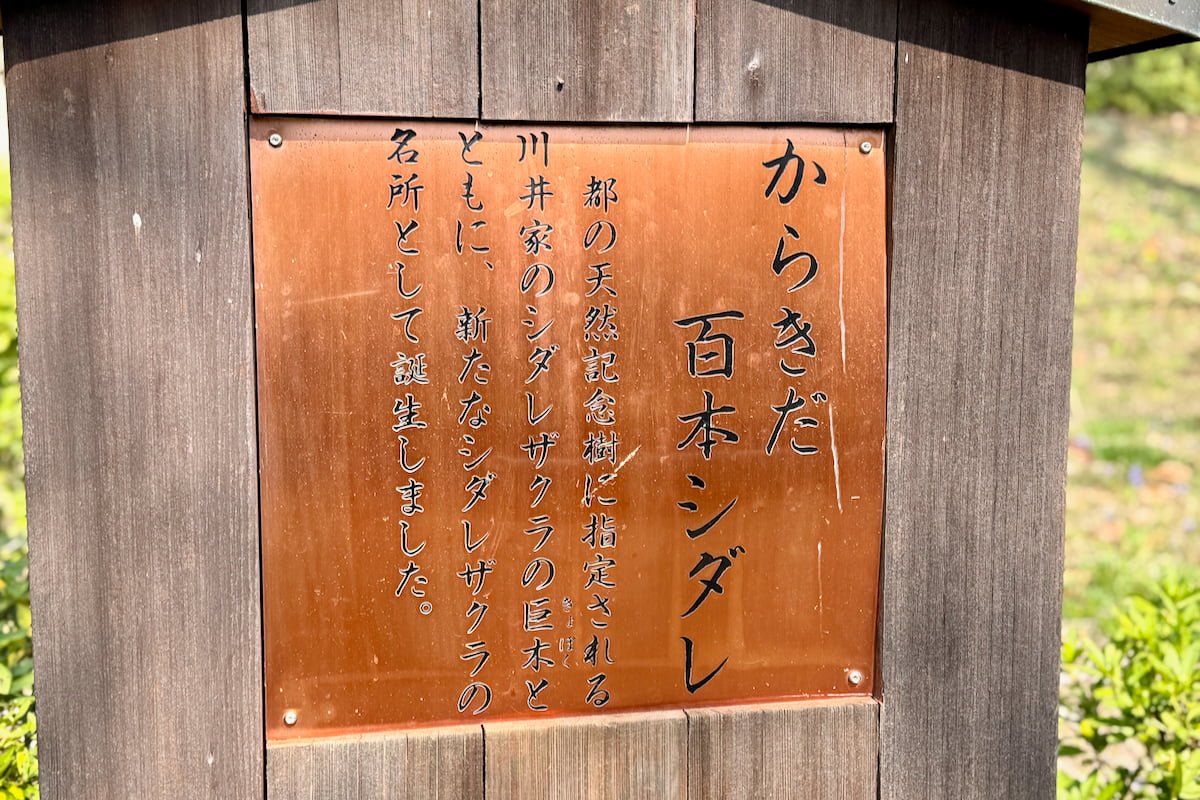 からきだ
百本シダレ
都の天然記念樹に指定される
川井家のシダレザクラの巨木と
きょぼく
ともに、新たなシダレザクラの
名所として誕生しました。